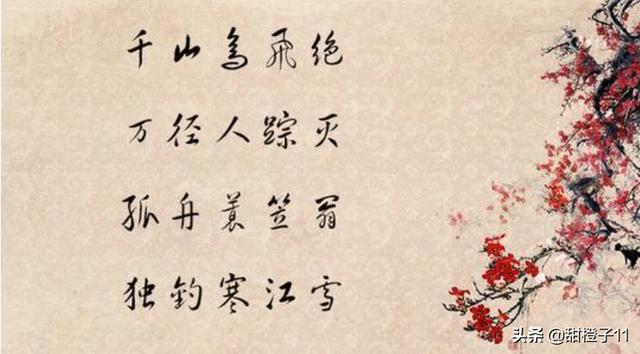 千山鸟飞绝
万径人踪灭
孤舟蓑笠翁
独钓寒江雪
头条 @甜橙子11